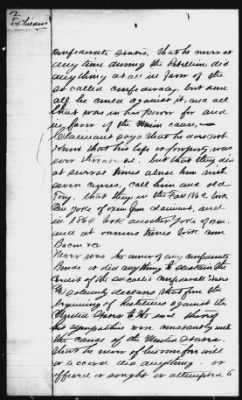 2
confederate service, that he never at
any time during the Rebellion, did
anything at all in favor of the
so called confederacy, but done
all he could against it, and all
that was in his power for and
in favor of the Union cause,
Claimant says that he does not
know that his life or property was
ever threatened, but that they did
at several times abuse him and
even curse, call him an old
Tory, that they in the Fall 1862 took
one yoke of oxen from claimant, and
in 1864 took another yoke of oxen
and at various times took some
Bacon &c
Never was the owner of any confederate
Bonds or did anything to sustain the
credit of the so called confederate States
He solemnly declares that from the
beginning of Hostilities against the
United States to the end thereof
his sympathies were constantly with
the cause of the United States
that he never of his own free will
or accord did anything, or
offered or sought or attempted to